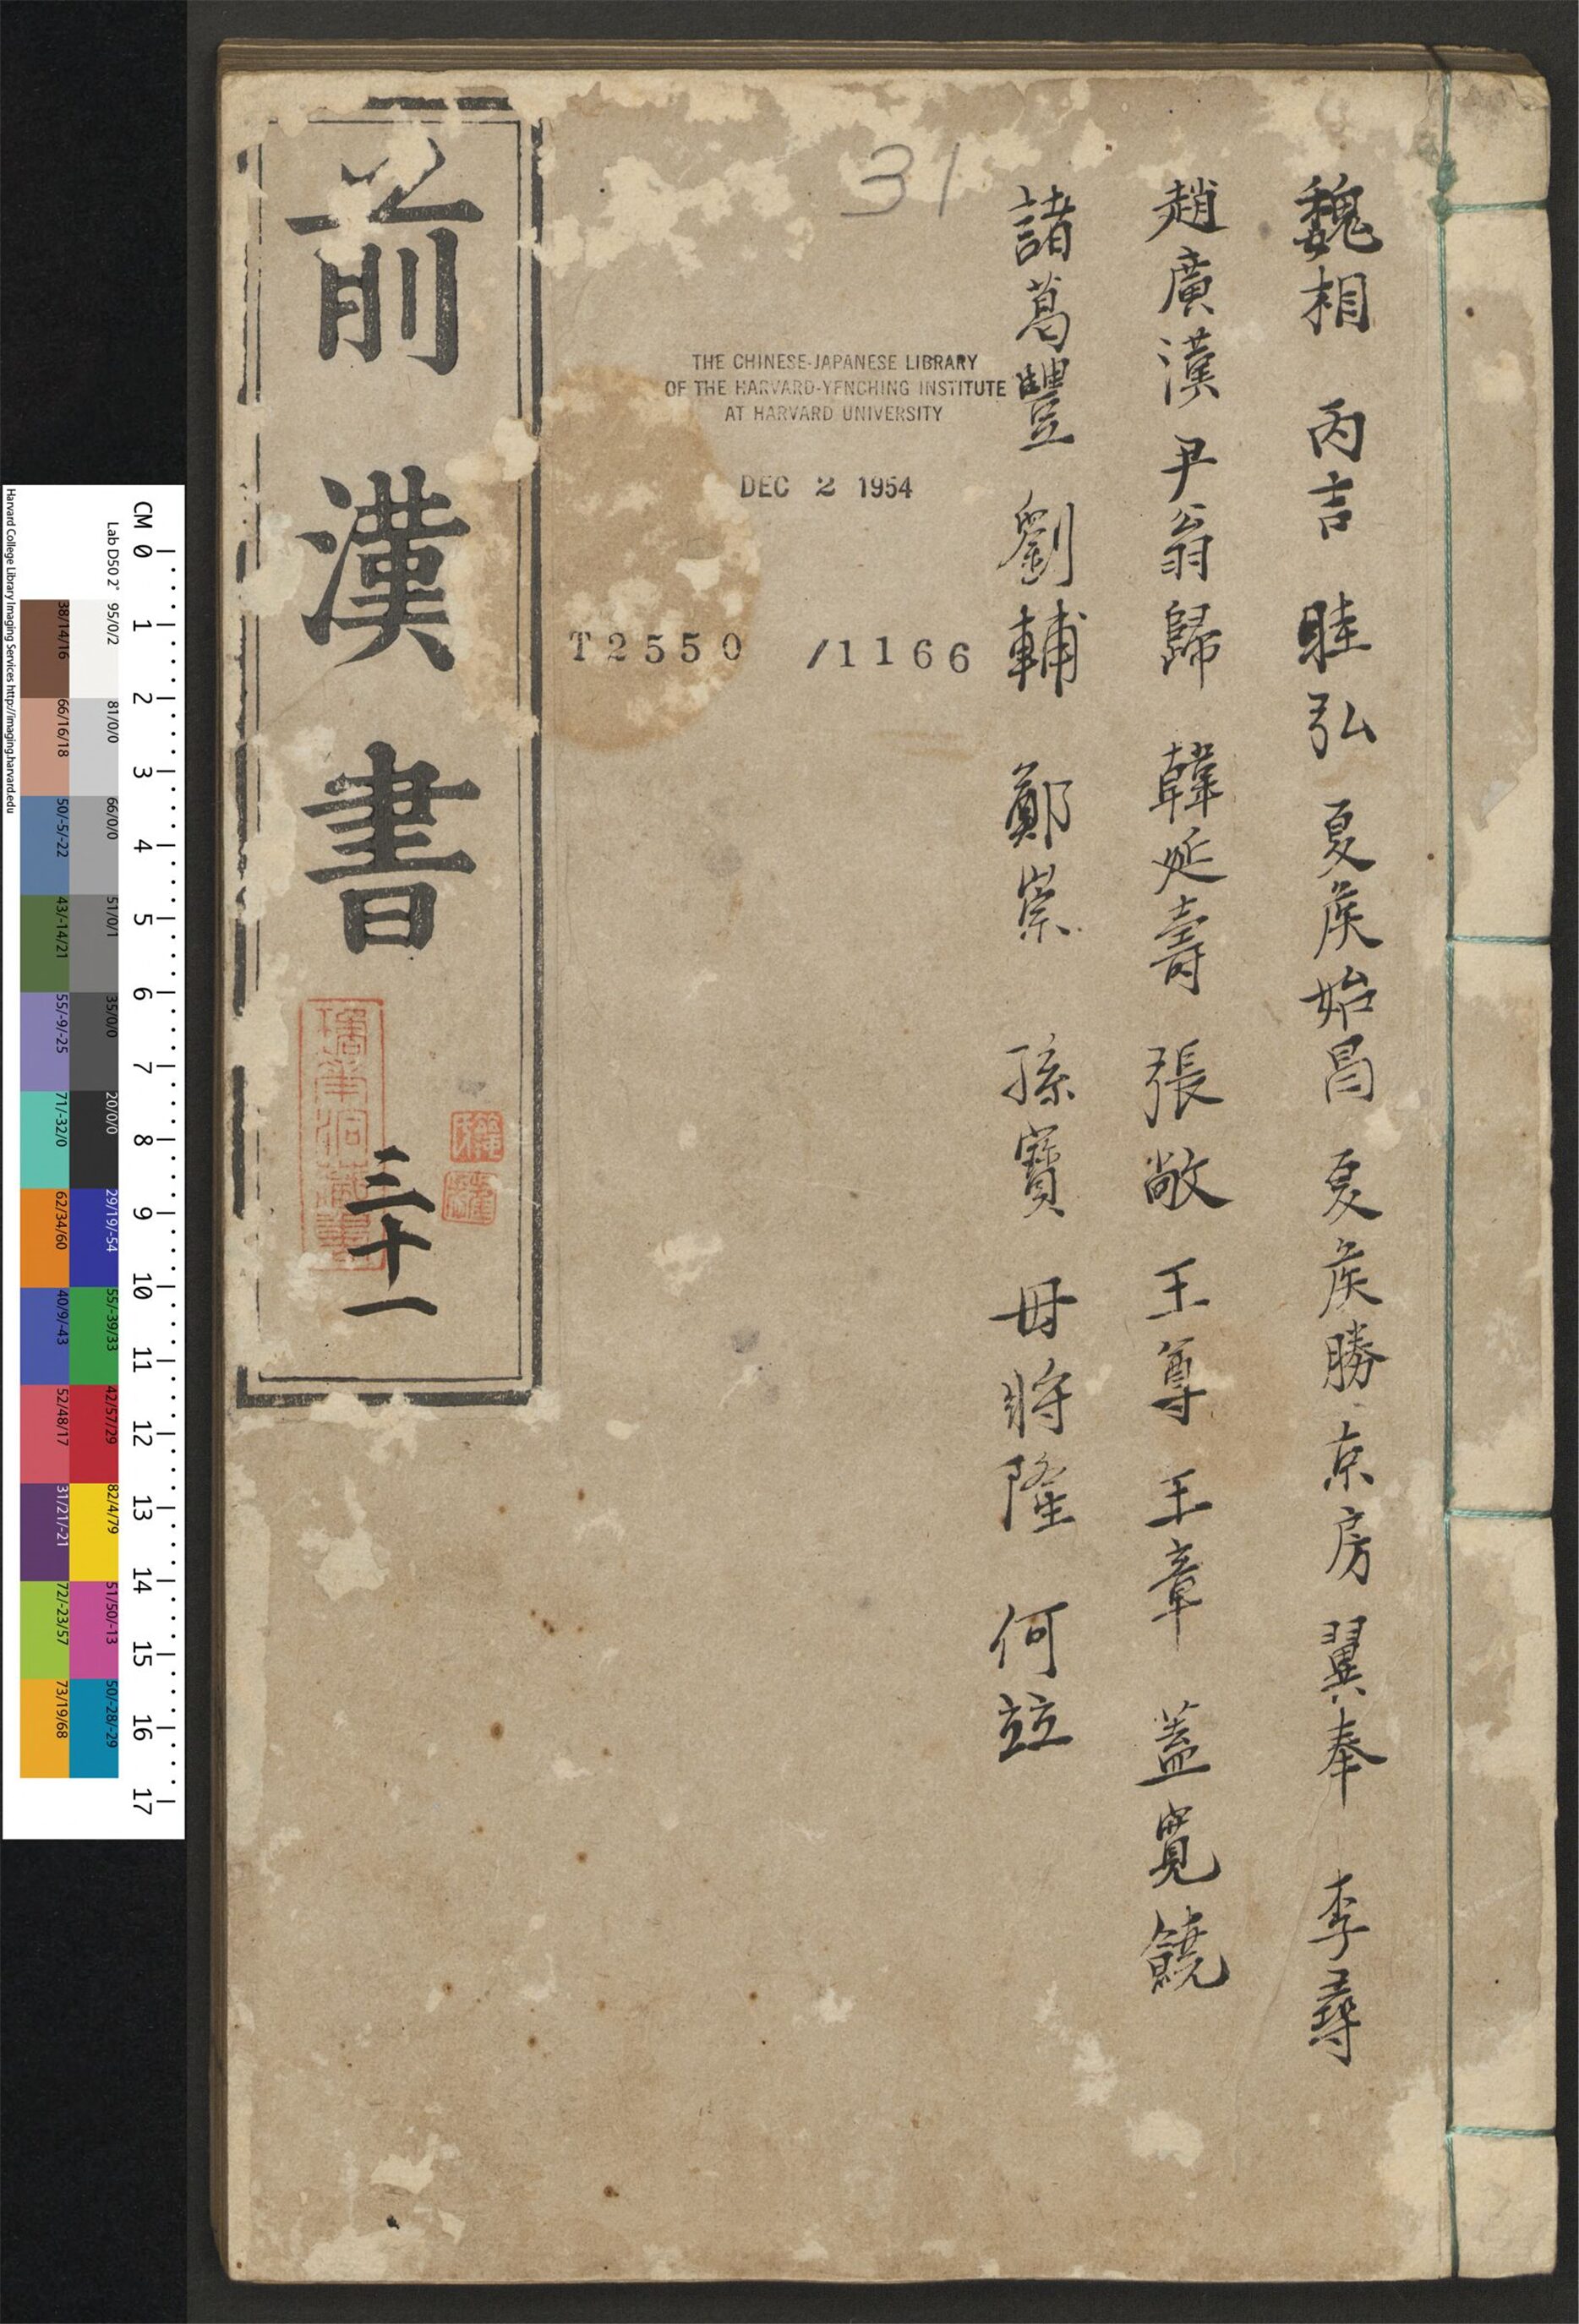 魏相 丙吉 眭弘 夏矦始昌 夏矦勝 京房 翼奉 李尋
趙廣漢 尹翁歸 韓延壽 張敞 王尊 王章 蓋寬饒
諸葛豐 劉輔 鄭崇 孫寶 毋將隆 何竝
31
THE CHINESE-JAPANESE LIBRARY
OF THE HARVARD-YENCHING INSTITUTE
AT HARVARD UNIVERSITY
DEC 2 1954
T2550 /1166
前漢書
三十一
CM 0 1 2 3 4 5 6 7 8 9 10 11 12 13 14 15 16 17
Lab D50 2° 95/0/2 81/0/0 66/0/0 51/0/1 35/0/0 20/0/0 29/19/-54 55/-39/33 42/57/29 82/4/79 51/50/-13 50/-28/-29
38/14/16 66/16/18 50/-5/-22 43/-14/21 55/-9/-25 71/-32/0 62/34/60 40/9/-43 52/48/17 31/21/-21 72/-23/57 73/19/68
Harvard College Library Imaging Services http://imaging.harvard.edu